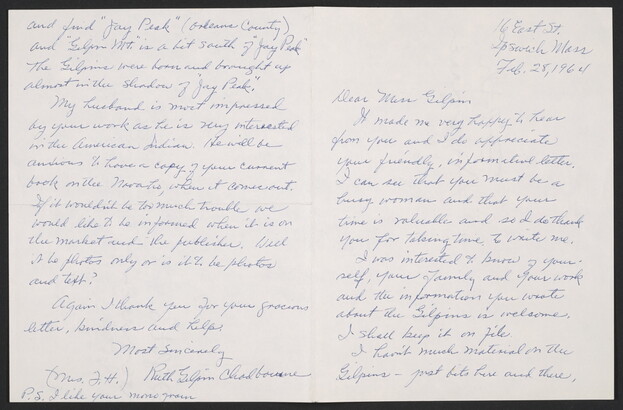 16 East St.
Ipswich Mass
Feb. 28, 1964
Dear Miss Gilpin
It made me very happy to hear
from you and I do appreciate
your friendly, informative letter.
I can see that you must be a
busy woman and that your
time is valuable and so I do thank
you for taking time to write me.
I was interested to know of your-
self, your family and your work
and the information you wrote
about the Gilpins is welcome.
I shall keep it on file.
I havn't much material on the
Gilpins – just bits here and there,
and find "Jay Peak" (Orleans County)
and "Gilpin Mt." is a bit south of "Jay Peak"
The Gilpins were born and brought up
almost in the shadow of "Jay Peak".
My husband is most impressed
by your work as he is very interested
in the American Indian. He will be
anxious to have a copy of your current
book on the Navatio, when it comes out.
If it wouldn't be too much trouble we
would like to be informed when it is on
the market and the publisher. Will
it be photos only or is it to be photos
and text?
Again I thank you for your gracious
letter, kindness and help.
Most Sincerely
(Mrs. F. H.) Ruth Gilpin Chadbourne
P.S. I like your monogram